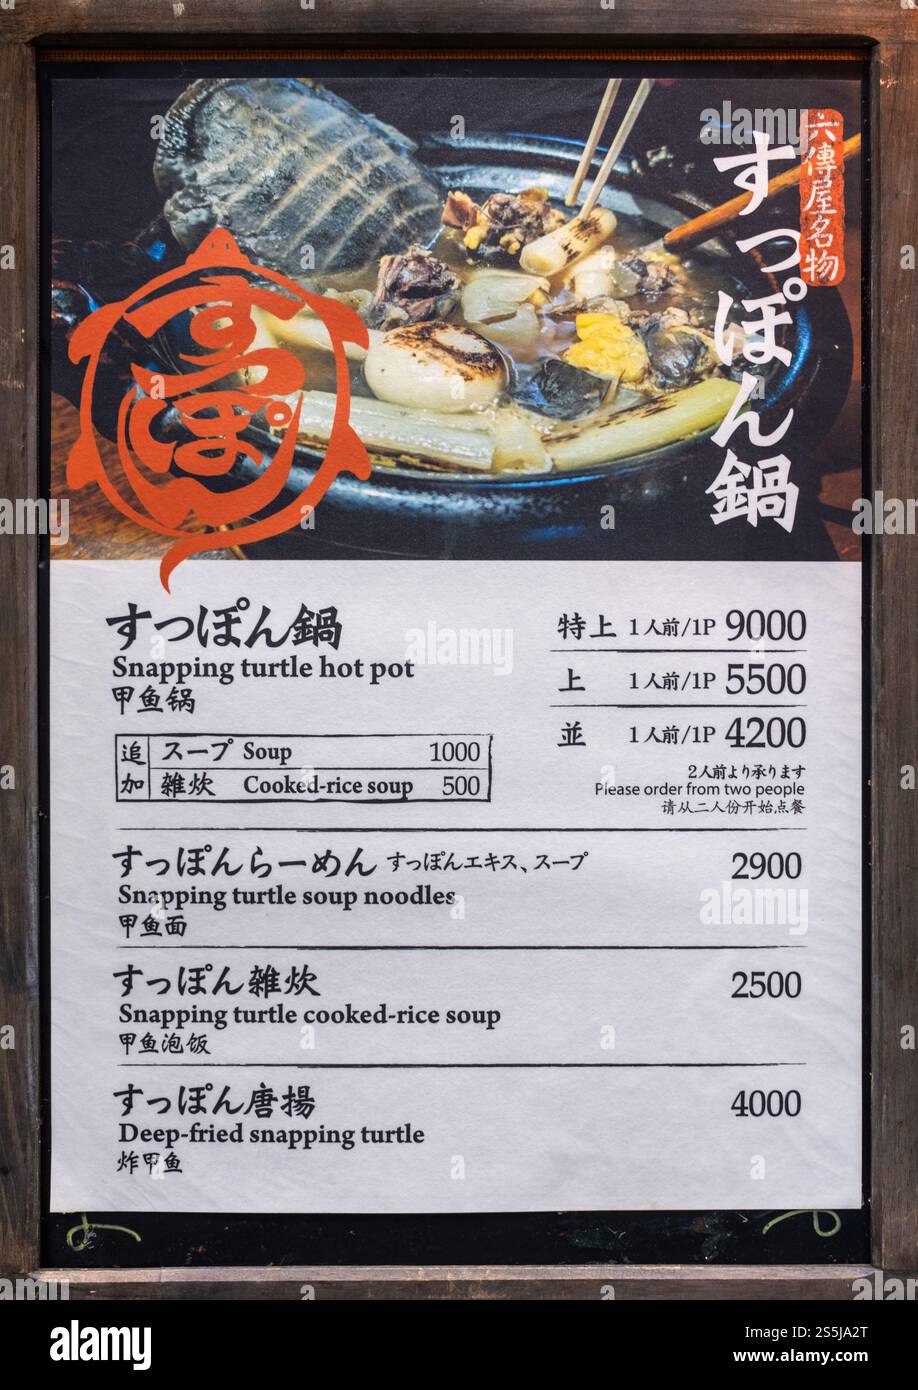 六傳屋名物
すっぽん鍋
すっぽん
すっぽん鍋
Snapping turtle hot pot
甲鱼锅
特上 1人前/1P 9000
上 1人前/1P 5500
並 1人前/1P 4200
2人前より承ります
Please order from two people
请从二人份开始点餐
追加
スープ Soup 1000
雑炊 Cooked-rice soup 500
すっぽんらーめん すっぽんエキス、スープ 2900
Snapping turtle soup noodles
甲鱼面
すっぽん雑炊 2500
Snapping turtle cooked-rice soup
甲鱼泡饭
すっぽん唐揚 4000
Deep-fried snapping turtle
炸甲鱼
alamy
Image ID: 2S5JA2T
www.alamy.com